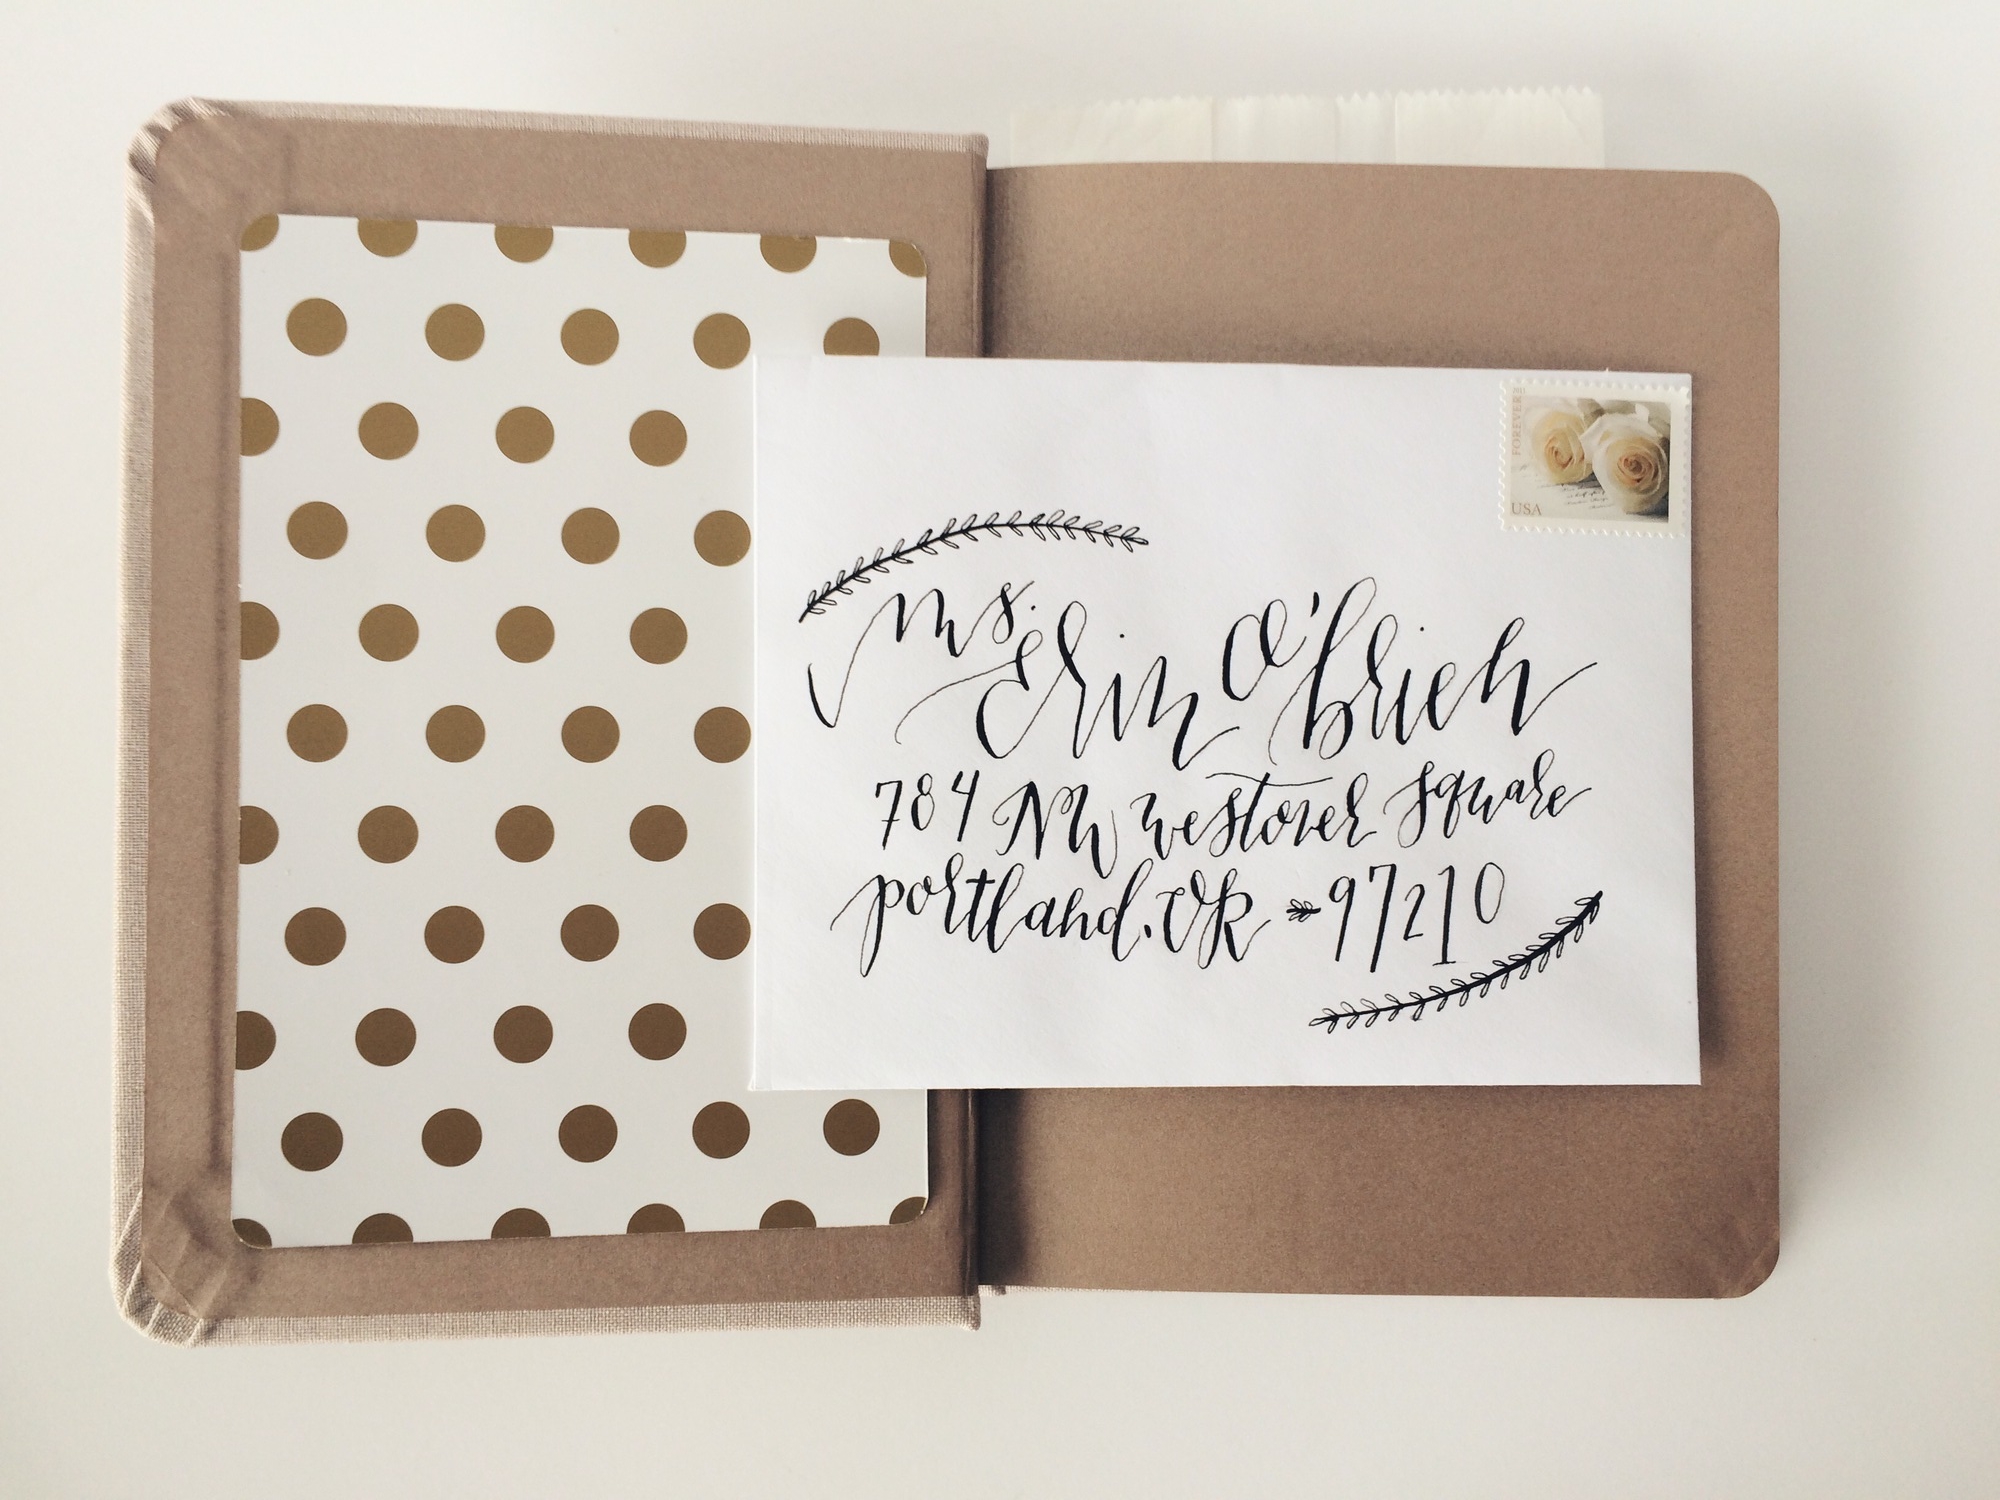 FOREVER
USA
Ms.
Erin O'Brien
784 NW Westover Square
Portland, OR 97210